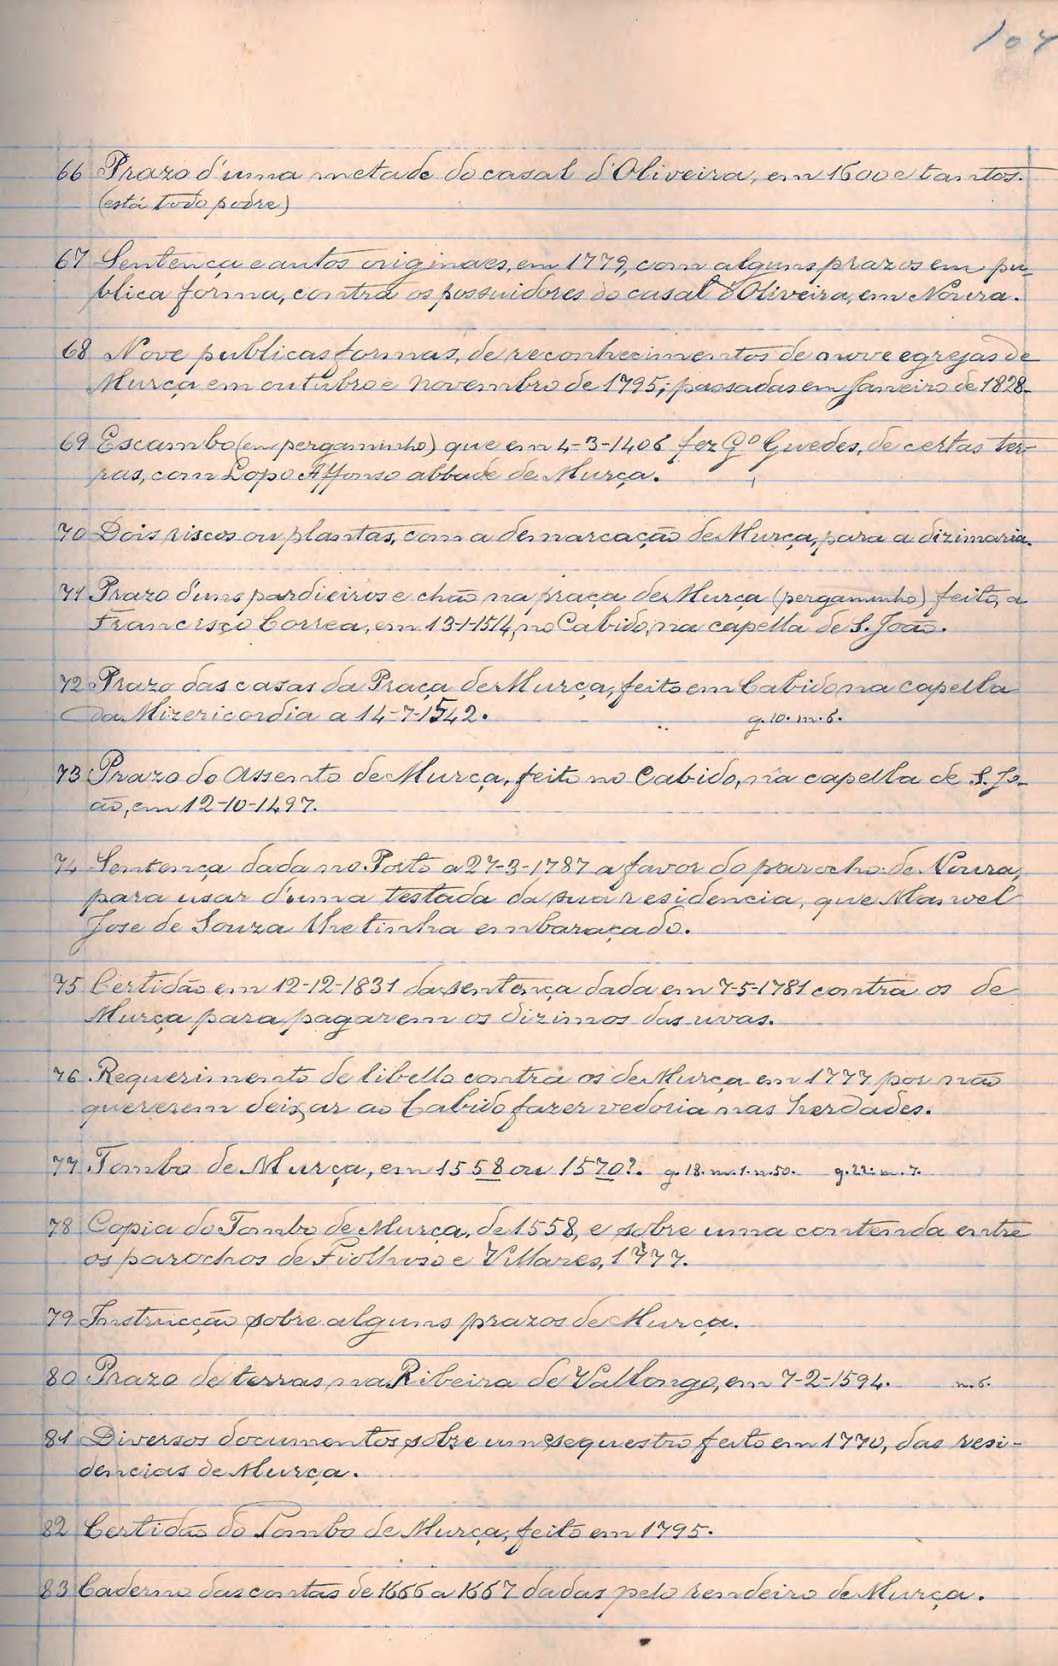 107
66 Prazo d'uma metade do casal d'Oliveira, em 1600 e tantos.
(está todo podre)
67 Sentença e autos originaes, em 1779, com alguns prazos em pu-
blica forma, contra os possuidores do casal d'Oliveira, em Noura.
68 Nove publicas formas, de reconhecimentos de nove egrejas de
Murça em outubro e novembro de 1795; passadas em Janeiro de 1828.
69 Escambo (em pergaminho) que em 4-3-1406 fez Gº Guedes, de certas ter-
ras, com Lopo Affonso abbade de Murça.
70 Dois riscos ou plantas, com a demarcação de Murça, para a dizimaria.
71 Prazo d'uns pardieiros e chão na praça de Murça (pergaminho) feito a
Francisco Correa, em 13-1-1514, no Cabido, na capella de S. João.
72 Prazo das casas da Praça de Murça, feito em Cabido, na capella
da Mizericordia a 14-7-1542. g. 10. m. 6.
73 Prazo do Assento de Murça, feito no Cabido, na capella de S. Jo-
ão, em 12-10-1497.
74 Sentença dada no Porto a 27-3-1787 a favor do parocho de Noura,
para usar d'uma testada da sua residencia, que Manoel
Jose de Souza lhe tinha embaraçado.
75 Certidão em 12-12-1831 da sentença dada em 7-5-1781 contra os de
Murça para pagarem os dizimos das uvas.
76 Requerimento de libello contra os de Murça em 1777 por não
quererem deixar ao Cabido fazer vedoria nas herdades.
77 Tombo de Murça, em 1558 ou 1570?. g. 18. m. 1. n. 50. g. 22. m. 7.
78 Copia do Tombo de Murça, de 1558, e sobre uma contenda entre
os parochos de Fiolhoso e Villares, 1777.
79 Instrucção sobre alguns prazos de Murça.
80 Prazo de terras, na Ribeira de Vallongo, em 7-2-1594. m. 6.
81 Diversos documentos sobre um sequestro feito em 1770, das resi-
dencias de Murça.
82 Certidão do Tombo de Murça, feito em 1795.
83 Caderno das contas de 1666 a 1667 dadas pelo rendeiro de Murça.